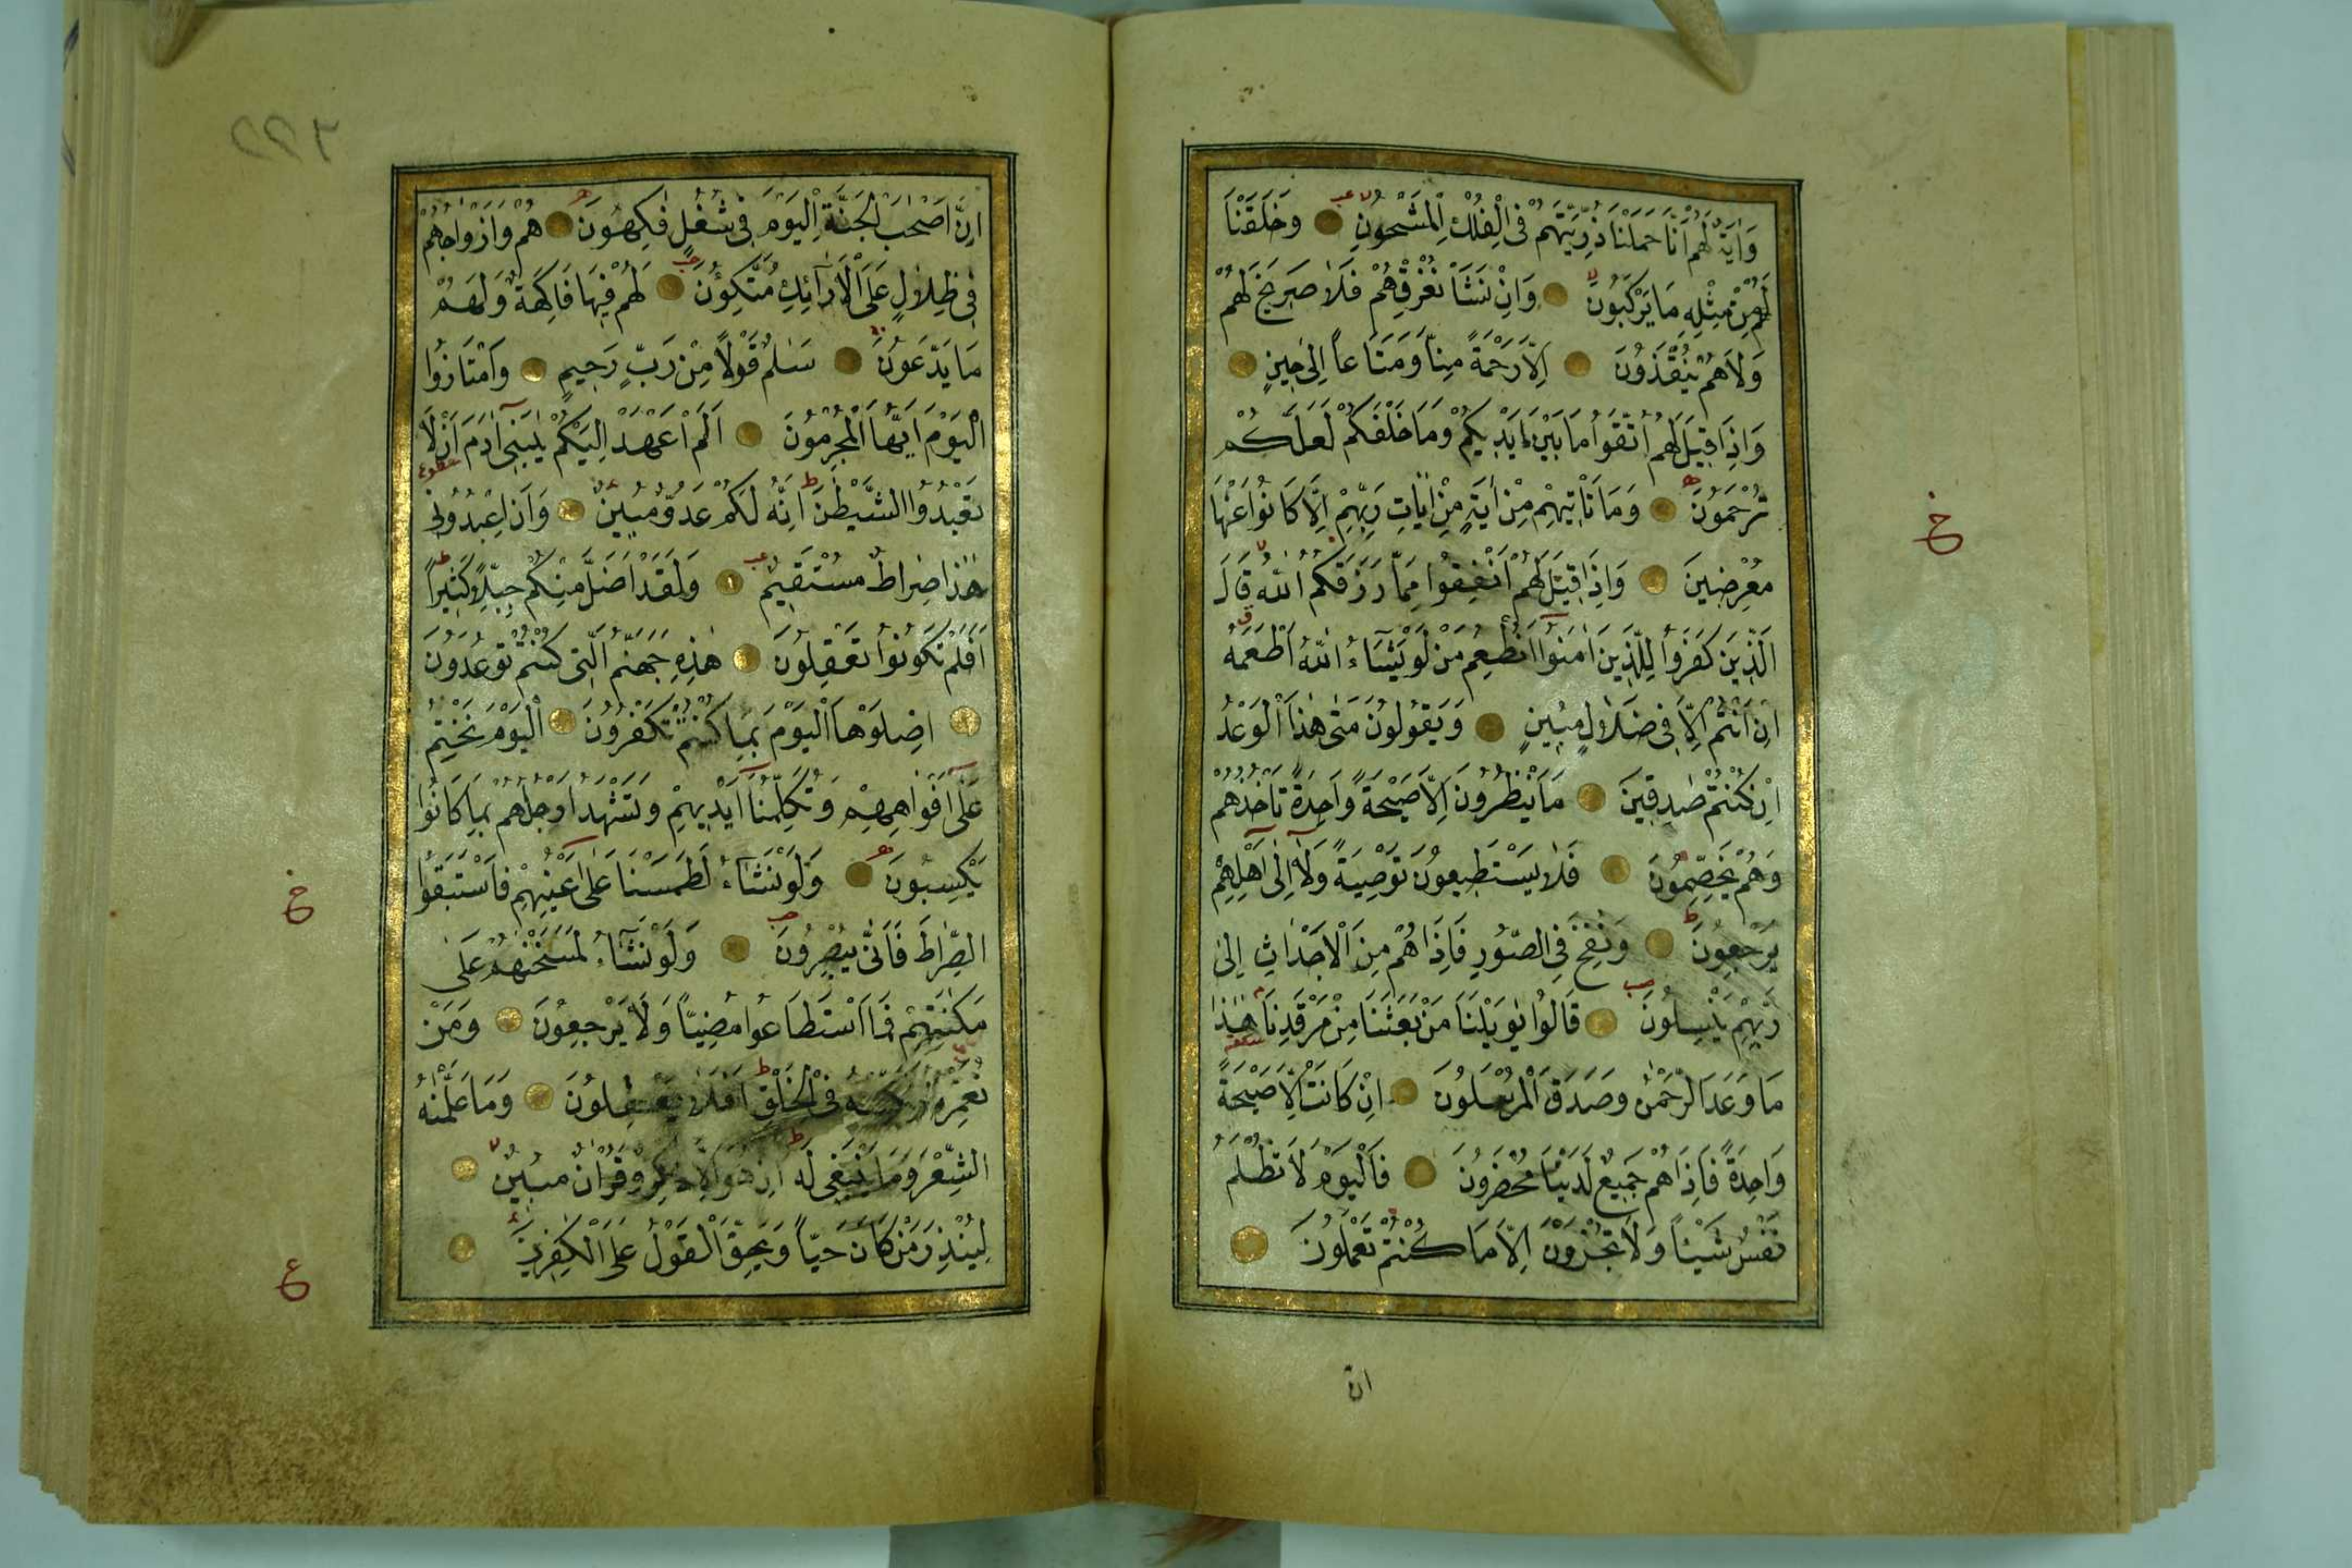 وَاٰيَةٌ لَهُمْ اَنَّا حَمَلْنَا ذُرِّيَّتَهُمْ فِى الْفُلْكِ الْمَشْحُونِ وَخَلَقْنَا
لَهُمْ مِنْ مِثْلِهِ مَا يَرْكَبُونَ وَاِنْ نَشَأْ نُغْرِقْهُمْ فَلَا صَرِيخَ لَهُمْ
وَلَا هُمْ يُنْقَذُونَ اِلَّا رَحْمَةً مِنَّا وَمَتَاعاً اِلٰى حِينٍ
وَاِذَا قِيلَ لَهُمُ اتَّقُوا مَا بَيْنَ اَيْدِيكُمْ وَمَا خَلْفَكُمْ لَعَلَّكُمْ
تُرْحَمُونَ وَمَا تَأْتِيهِمْ مِنْ اٰيَةٍ مِنْ اٰيَاتِ رَبِّهِمْ اِلَّا كَانُوا عَنْهَا
مُعْرِضِينَ وَاِذَا قِيلَ لَهُمْ اَنْفِقُوا مِمَّا رَزَقَكُمُ اللّٰهُ قَالَ
الَّذِينَ كَفَرُوا لِلَّذِينَ اٰمَنُوا اَنُطْعِمُ مَنْ لَوْ يَشَاءُ اللّٰهُ اَطْعَمَهُ
اِنْ اَنْتُمْ اِلَّا فِى ضَلَالٍ مُبِينٍ وَيَقُولُونَ مَتٰى هٰذَا الْوَعْدُ
اِنْ كُنْتُمْ صٰدِقِينَ مَا يَنْظُرُونَ اِلَّا صَيْحَةً وَاحِدَةً تَأْخُذُهُمْ
وَهُمْ يَخِصِّمُونَ فَلَا يَسْتَطِيعُونَ تَوْصِيَةً وَلَا اِلٰى اَهْلِهِمْ
يَرْجِعُونَ وَنُفِخَ فِى الصُّورِ فَاِذَا هُمْ مِنَ الْاَجْدَاثِ اِلٰى
رَبِّهِمْ يَنْسِلُونَ قَالُوا يٰوَيْلَنَا مَنْ بَعَثَنَا مِنْ مَرْقَدِنَا هٰذَا
مَا وَعَدَ الرَّحْمٰنُ وَصَدَقَ الْمُرْسَلُونَ اِنْ كَانَتْ اِلَّا صَيْحَةً
وَاحِدَةً فَاِذَا هُمْ جَمِيعٌ لَدَيْنَا مُحْضَرُونَ فَالْيَوْمَ لَا تُظْلَمُ
نَفْسٌ شَيْئاً وَلَا تُجْزَوْنَ اِلَّا مَا كُنْتُمْ تَعْمَلُونَ
ان
٢٢٣
اِنَّ اَصْحٰبَ الْجَنَّةِ الْيَوْمَ فِى شُغُلٍ فٰكِهُونَ هُمْ وَاَزْوَاجُهُمْ
فِى ظِلَالٍ عَلَى الْاَرَآئِكِ مُتَّكِؤُنَ لَهُمْ فِيهَا فَاكِهَةٌ وَلَهُمْ
مَا يَدَّعُونَ سَلٰمٌ قَوْلًا مِنْ رَبٍّ رَحِيمٍ وَامْتَازُوا
الْيَوْمَ اَيُّهَا الْمُجْرِمُونَ اَلَمْ اَعْهَدْ اِلَيْكُمْ يٰبَنِى اٰدَمَ اَنْ لَا
تَعْبُدُوا الشَّيْطٰنَ اِنَّهُ لَكُمْ عَدُوٌّ مُبِينٌ وَاَنِ اعْبُدُونِى
هٰذَا صِرَاطٌ مُسْتَقِيمٌ وَلَقَدْ اَضَلَّ مِنْكُمْ جِبِلًّا كَثِيراً
اَفَلَمْ تَكُونُوا تَعْقِلُونَ هٰذِهِ جَهَنَّمُ الَّتِى كُنْتُمْ تُوعَدُونَ
اِصْلَوْهَا الْيَوْمَ بِمَا كُنْتُمْ تَكْفُرُونَ اَلْيَوْمَ نَخْتِمُ
عَلٰى اَفْوَاهِهِمْ وَتُكَلِّمُنَا اَيْدِيهِمْ وَتَشْهَدُ اَرْجُلُهُمْ بِمَا كَانُوا
يَكْسِبُونَ وَلَوْ نَشَاءُ لَطَمَسْنَا عَلٰى اَعْيُنِهِمْ فَاسْتَبَقُوا
الصِّرَاطَ فَاَنّٰى يُبْصِرُونَ وَلَوْ نَشَآءُ لَمَسَخْنٰهُمْ عَلٰى
مَكٰنَتِهِمْ فَمَا اسْتَطَاعُوا مُضِيّاً وَلَا يَرْجِعُونَ وَمَنْ
نُعَمِّرْهُ نُنَكِّسْهُ فِى الْخَلْقِ اَفَلَا يَعْقِلُونَ وَمَا عَلَّمْنٰهُ
الشِّعْرَ وَمَا يَنْبَغِى لَهُ اِنْ هُوَ اِلَّا ذِكْرٌ وَقُرْاٰنٌ مُبِينٌ
لِيُنْذِرَ مَنْ كَانَ حَيّاً وَيَحِقَّ الْقَوْلُ عَلَى الْكٰفِرِينَ